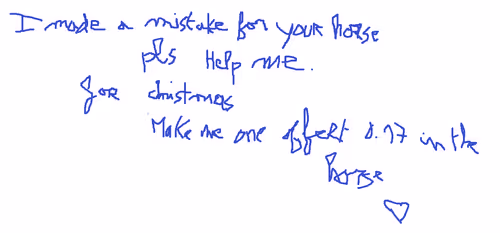 I made a mistake for your horse
pls Help me.
for christmas
Make me one offert 0.17 in the
horse